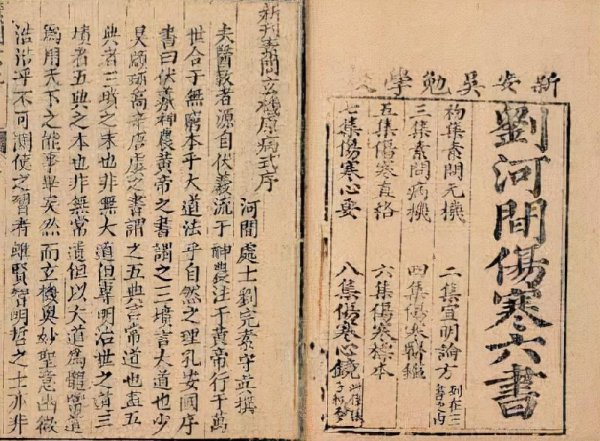 新安吳勉學
劉河間傷寒六書
初集素問元機 二集宣明論方 列在三書之內
三集素問病機 四集傷寒醫鑑
五集傷寒直格 六集傷寒標本
七集傷寒心要 八集傷寒心鏡
新刊素問玄機原病式序
河間處士劉完素守真撰
夫醫教者源自伏羲流于神農注于黃帝行于萬
世合于無窮本乎大道法乎自然之理孔安國序
書曰伏羲神農黃帝之書謂之三墳言大道也少
昊顓頊高辛唐虞之書謂之五典言常道也蓋五
典者三墳之末也非無大道但專明治世之道三
墳者五典之本也非無常道但以大道為體常道
為用天下之能事畢矣然而玄機奧妙聖意幽微
浩浩乎不可測使之習者雖賢智明哲之士亦非